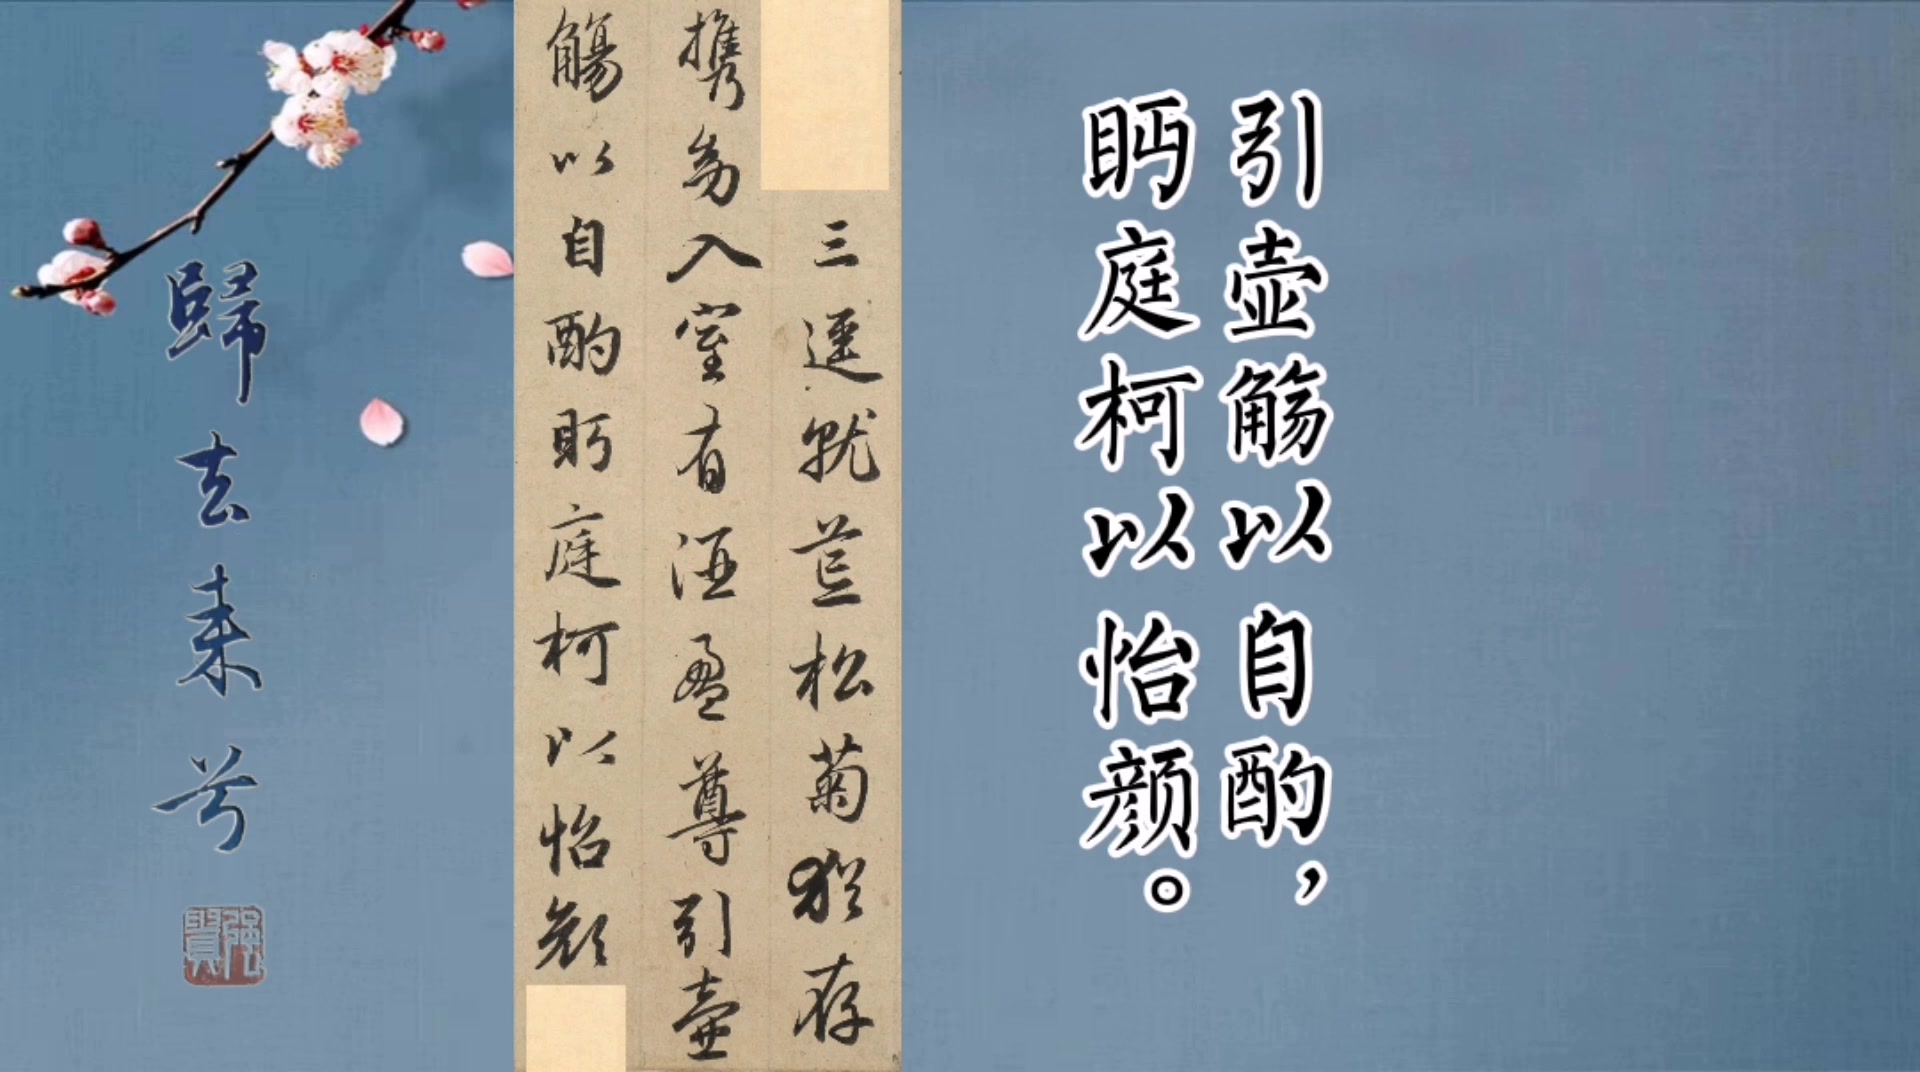 歸去来兮
三逕就荒松菊猶存
携幼入室有酒盈尊引壺
觴以自酌眄庭柯以怡顔
引壶觞以自酌，
眄庭柯以怡颜。